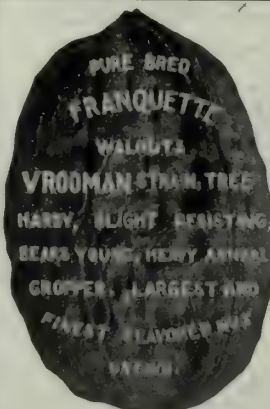 PURE BRED
FRANQUETTE
WALNUTS
VROOMAN STRAIN, TREE
HARDY, BLIGHT RESISTING,
BEARS YOUNG, HEAVY ANNUAL
CROPPER, LARGEST AND
FINEST FLAVORED NUT